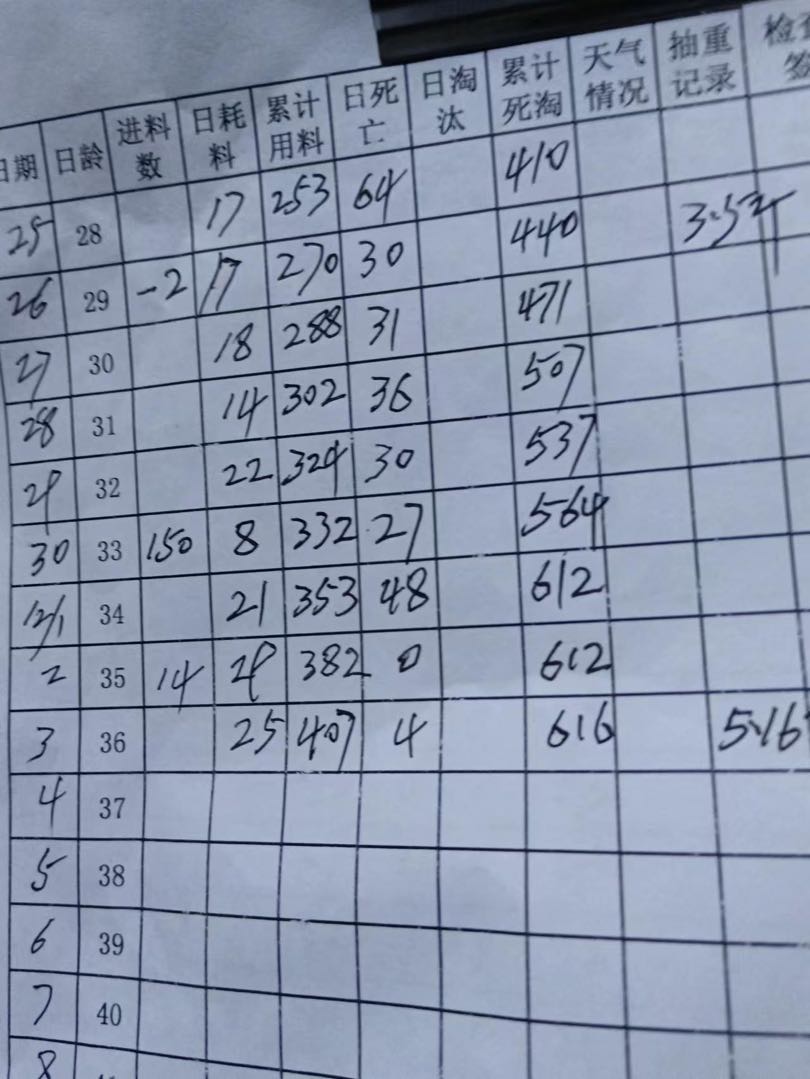 日期 日龄 进料数 日耗料 累计用料 日死亡 日淘汰 累计死淘 天气情况 抽重记录
25 28 17 253 64 410
26 29 -2 17 270 30 440
27 30 18 288 31 471
28 31 14 302 36 507
29 32 22 324 30 537
30 33 150 8 332 27 564
12/1 34 21 353 48 612
2 35 14 29 382 0 612
3 36 25 407 4 616 5.16
4 37
5 38
6 39
7 40
8